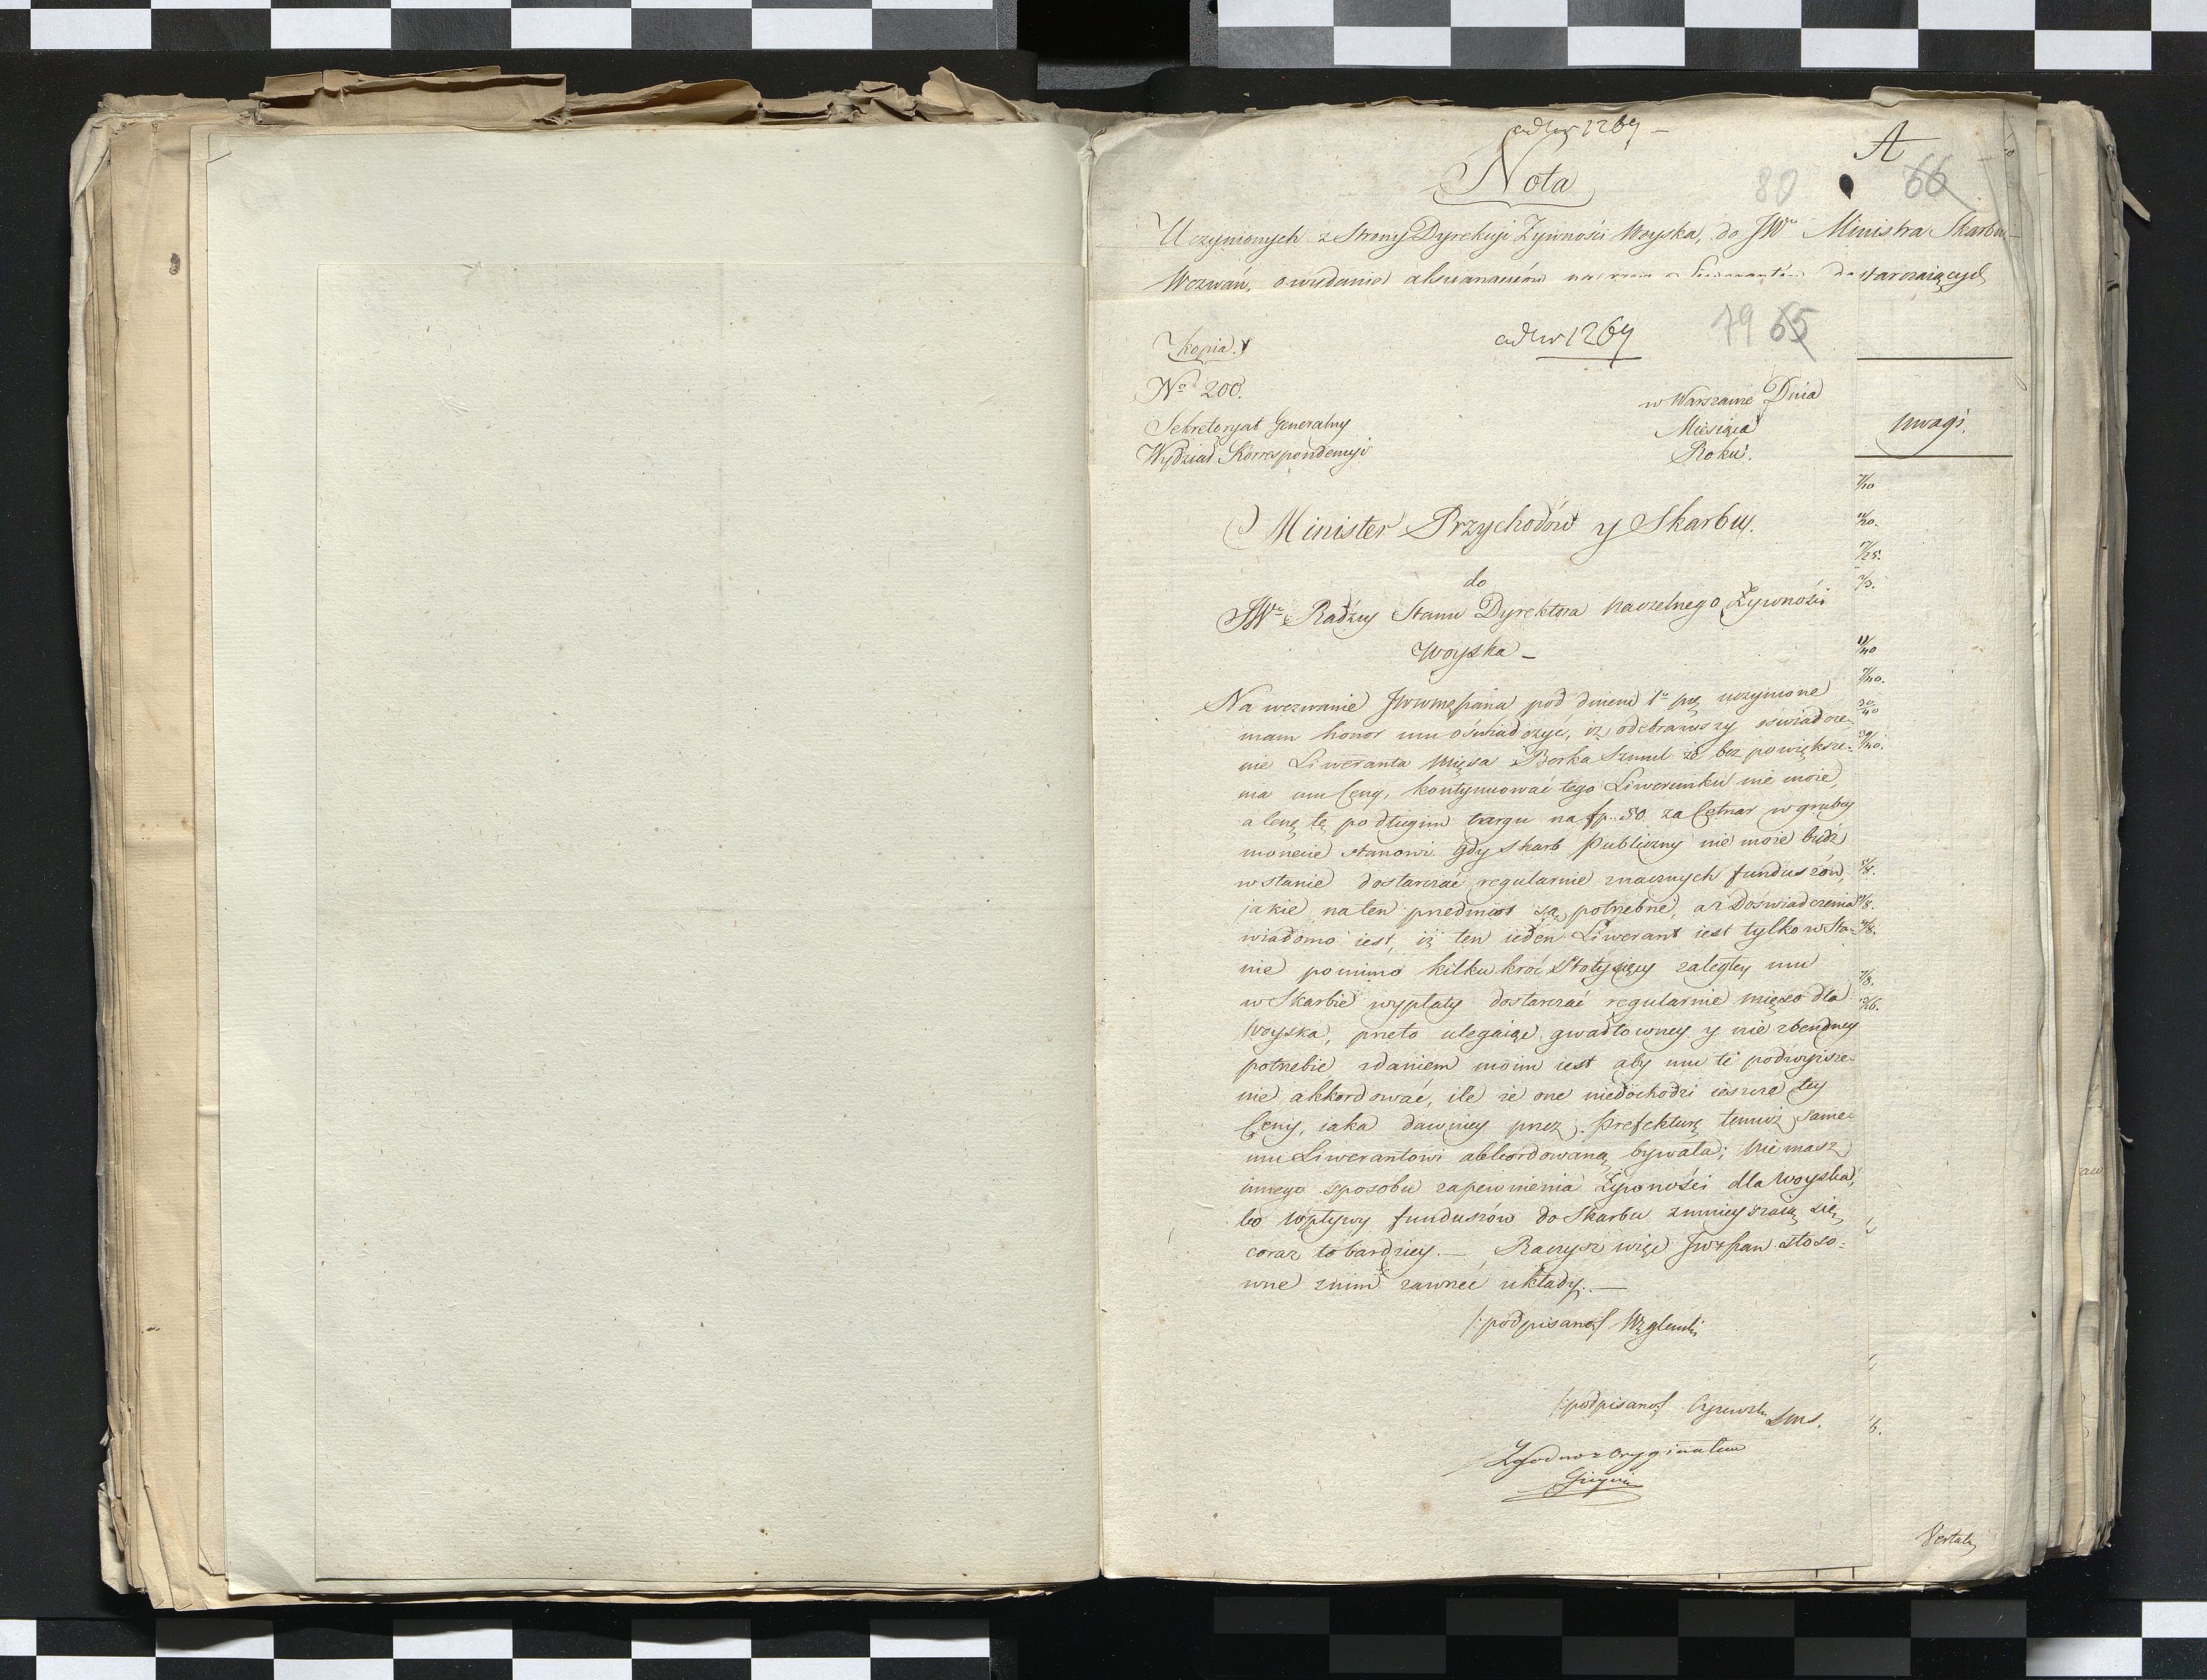 ad N 1269
A
Nota
80 66
Uczynionych z Strony Dyrekcyi Żywności Woyska, do JWo Ministra Skarbu
Wezwań, o wydanie dostarczaiących
ad N 1269
79 65
Kopia.
No 200.
Sekretaryat Generalny
Wydział Korrespondencyi
w Warszawie Dnia
Miesiąca
Roku.
Uwagi.
Minister Przychodów y Skarbu.
do
JWo Radzcy Stanu Dyrektora Naczelnego Żywności
Woyska
Na wezwanie pod dniem 1o uczynione
mam honor mu oświadczyć, iż odebrawszy oswiadcze-
nie Liweranta Mięsa Berka Szmul że bez powiększe-
nia mu Ceny, kontynuować tego Liwerunku nie może,
a Cenę tę po długim targu na fp. 50 za Cetnar w grubey
monecie stanowi gdy Skarb Publiczny nie może bydź
w stanie dostarczać regularnie znacznych funduszów,
jakie na ten przedmiot są potrzebne, a z Doświadczenia
wiadomo iest, iż ten ieden Liwerant iest tylko w Sta-
nie pomimo kilku kroć Stotysięcy zaległey mu
w Skarbie wypłaty dostarczać regularnie mięso dla
Woyska, przeto ulegaiąc gwałtowney y nie zbendney
potrzebie zdaniem moim iest aby mu te podwyższe-
nie akkordować, ile że one niedochodzi ieszcze tey
Ceny, iaka dawniey przez Prefekturę temuż same-
mu Liwerantowi akkordowaną bywała; Nie masz
innego sposobu zapewnienia Żywności dla Woyska,
bo Wpływy funduszów do Skarbu zmnieyszaią się
coraz to bardziey. — Raczysz więc JW Pan stoso-
wne znim zawrzeć układy. —
/:podpisano/ Węgleński
/:podpisano/ SMS.
Zgodno z Oryginałem
Vertatur